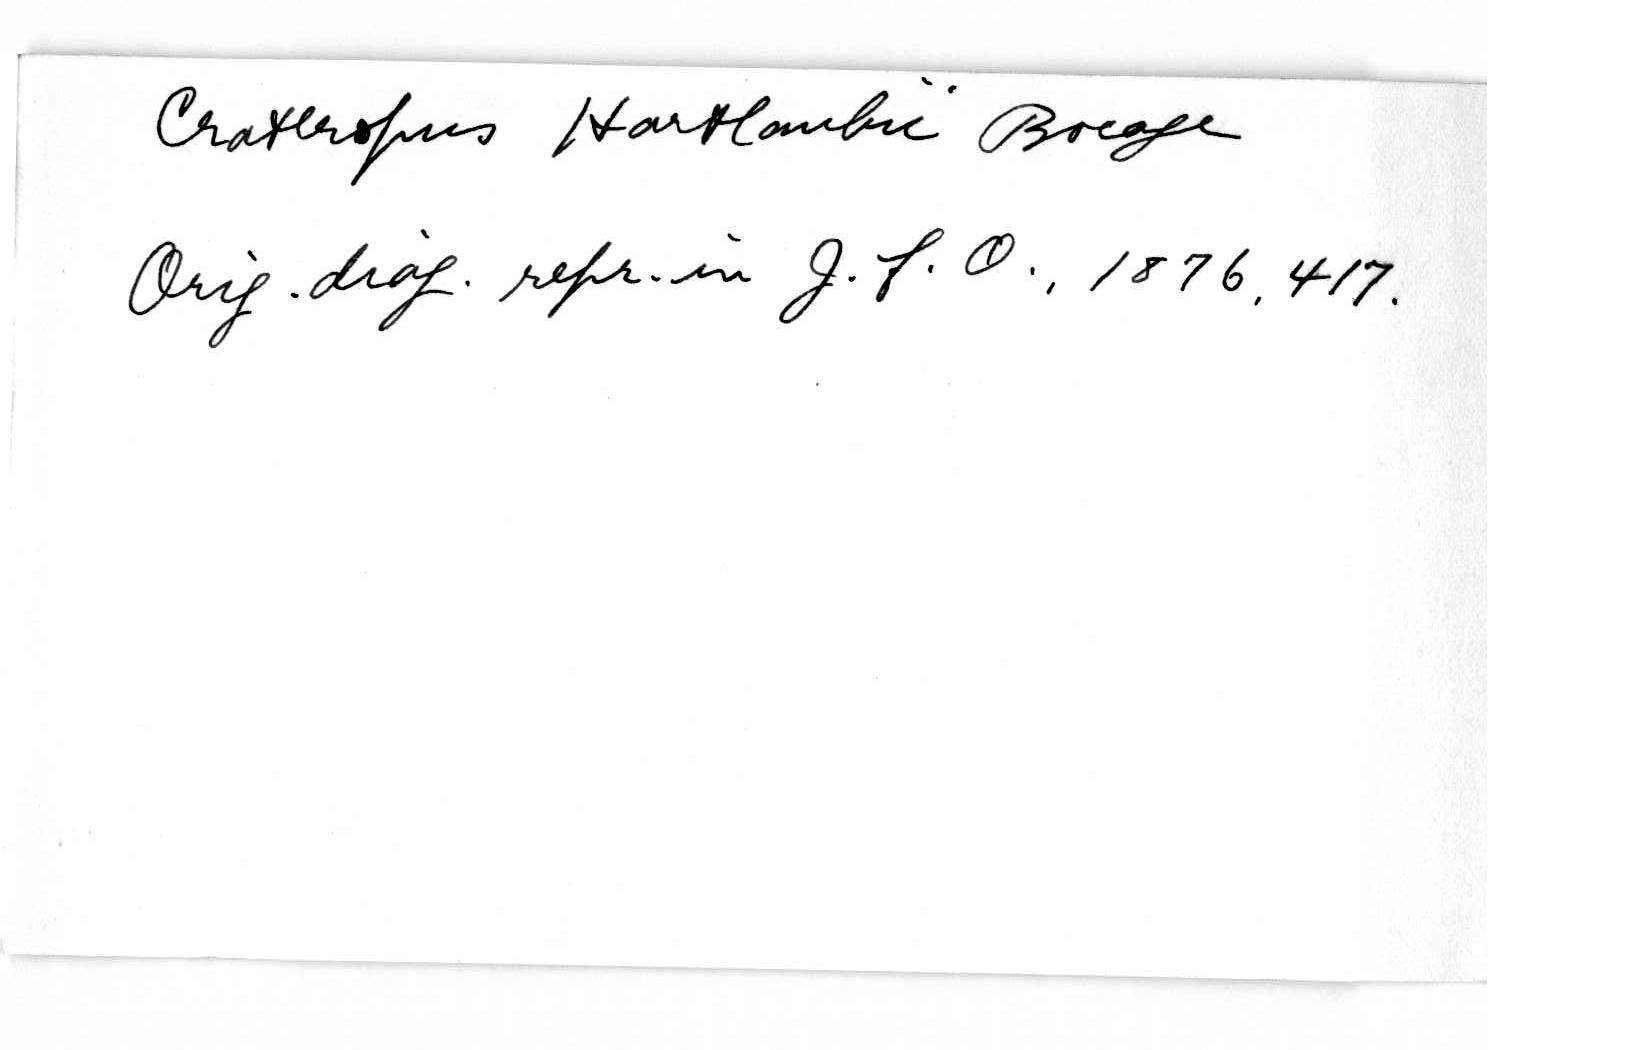 Crateropus Hartlaubii Bocage
Orig. diag. repr. in J. f. O., 1876, 417.